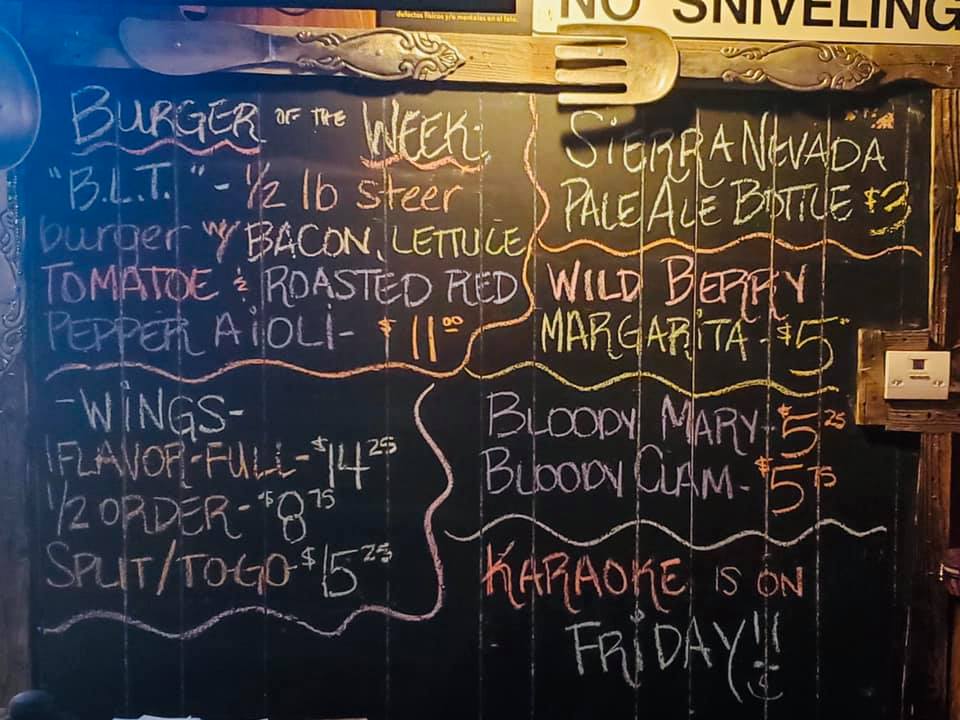 defectos físicos y/o mentales en el feto.
NO SNIVELING
BURGER OF THE WEEK:
"B.L.T." - 1/2 lb steer
burger w/ BACON, LETTUCE
TOMATOE & ROASTED RED
PEPPER AIOLI- $11.00
-WINGS-
1 FLAVOR-FULL- $14.25
1/2 ORDER- $8.75
SPLIT/TO GO $15.25
SIERRA NEVADA
PALE ALE BOTTLE $3
WILD BERRY
MARGARITA - $5
BLOODY MARY- $5.25
BLOODY CLAM- $5.75
KARAOKE IS ON
FRiDAY!!